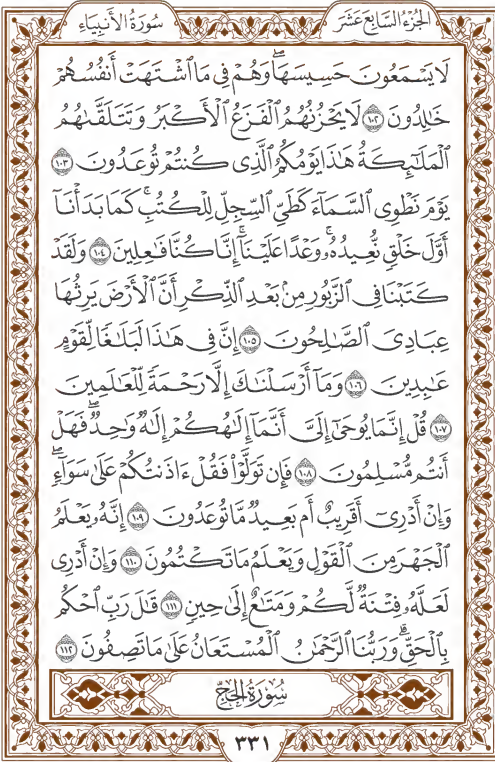 الجُزْءُ السَّابِعَ عَشَرَ
سُورَةُ الأَنبِيَاءِ
لَا يَسْمَعُونَ حَسِيسَهَا ۖ وَهُمْ فِي مَا ٱشْتَهَتْ أَنفُسُهُمْ
خَٰلِدُونَ ١٠٢ لَا يَحْزُنُهُمُ ٱلْفَزَعُ ٱلْأَكْبَرُ وَتَتَلَقَّىٰهُمُ
ٱلْمَلَٰٓئِكَةُ هَٰذَا يَوْمُكُمُ ٱلَّذِي كُنتُمْ تُوعَدُونَ ١٠٣
يَوْمَ نَطْوِي ٱلسَّمَآءَ كَطَيِّ ٱلسِّجِلِّ لِلْكُتُبِ ۚ كَمَا بَدَأْنَآ
أَوَّلَ خَلْقٍ نُّعِيدُهُۥ ۚ وَعْدًا عَلَيْنَآ ۚ إِنَّا كُنَّا فَٰعِلِينَ ١٠٤ وَلَقَدْ
كَتَبْنَا فِي ٱلزَّبُورِ مِنۢ بَعْدِ ٱلذِّكْرِ أَنَّ ٱلْأَرْضَ يَرِثُهَا
عِبَادِيَ ٱلصَّٰلِحُونَ ١٠٥ إِنَّ فِي هَٰذَا لَبَلَٰغًا لِّقَوْمٍ
عَٰبِدِينَ ١٠٦ وَمَآ أَرْسَلْنَٰكَ إِلَّا رَحْمَةً لِّلْعَٰلَمِينَ
١٠٧ قُلْ إِنَّمَا يُوحَىٰٓ إِلَيَّ أَنَّمَآ إِلَٰهُكُمْ إِلَٰهٌ وَٰحِدٌ ۖ فَهَلْ
أَنتُم مُّسْلِمُونَ ١٠٨ فَإِن تَوَلَّوْا۟ فَقُلْ ءَاذَنتُكُمْ عَلَىٰ سَوَآءٍ ۖ
وَإِنْ أَدْرِيٓ أَقَرِيبٌ أَم بَعِيدٌ مَّا تُوعَدُونَ ١٠٩ إِنَّهُۥ يَعْلَمُ
ٱلْجَهْرَ مِنَ ٱلْقَوْلِ وَيَعْلَمُ مَا تَكْتُمُونَ ١١٠ وَإِنْ أَدْرِي
لَعَلَّهُۥ فِتْنَةٌ لَّكُمْ وَمَتَٰعٌ إِلَىٰ حِينٍ ١١١ قَٰلَ رَبِّ ٱحْكُم
بِٱلْحَقِّ ۗ وَرَبُّنَا ٱلرَّحْمَٰنُ ٱلْمُسْتَعَانُ عَلَىٰ مَا تَصِفُونَ ١١٢
سُورَةُ الحَجِّ
٣٣١